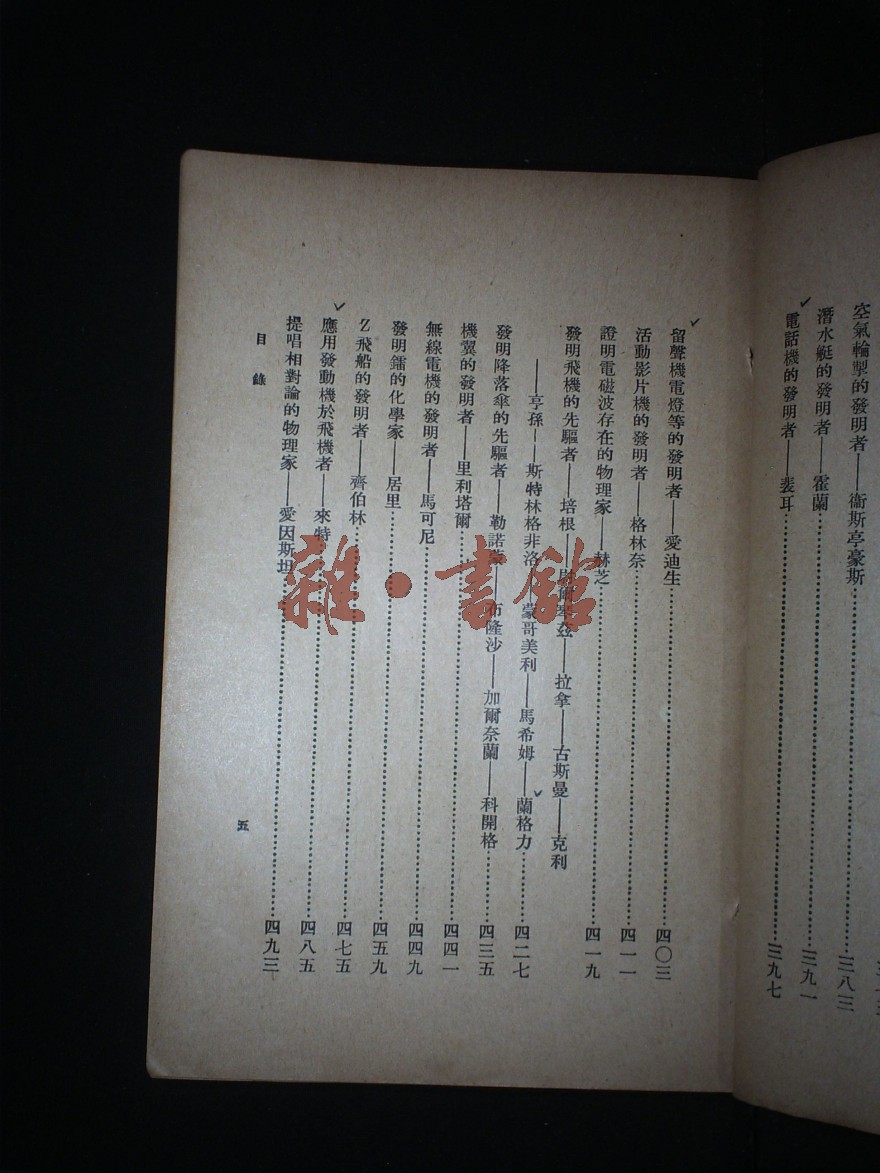 空氣輪掣的發明者——衞斯亭豪斯……三八三
潛水艇的發明者——霍蘭……三九一
電話機的發明者——裴耳……三九七
留聲機電燈等的發明者——愛迪生……四〇三
活動影片機的發明者——格林奈……四一一
證明電磁波存在的物理家——赫芝……四一九
發明飛機的先驅者——培根——爾——拉拿——古斯曼——克利
——亨孫——斯特林格非洛——蒙哥美利——馬希姆——蘭格力……四二七
發明降落傘的先驅者——勒諾——布隆沙——加爾奈蘭——科開格……四三五
機翼的發明者——里利塔爾……四四一
無線電機的發明者——馬可尼……四四九
發明鐳的化學家——居里……四五九
Z飛船的發明者——齊伯林……四七五
應用發動機於飛機者——來特……四八五
提唱相對論的物理家——愛因斯坦……四九三
目錄
五
雜·書館